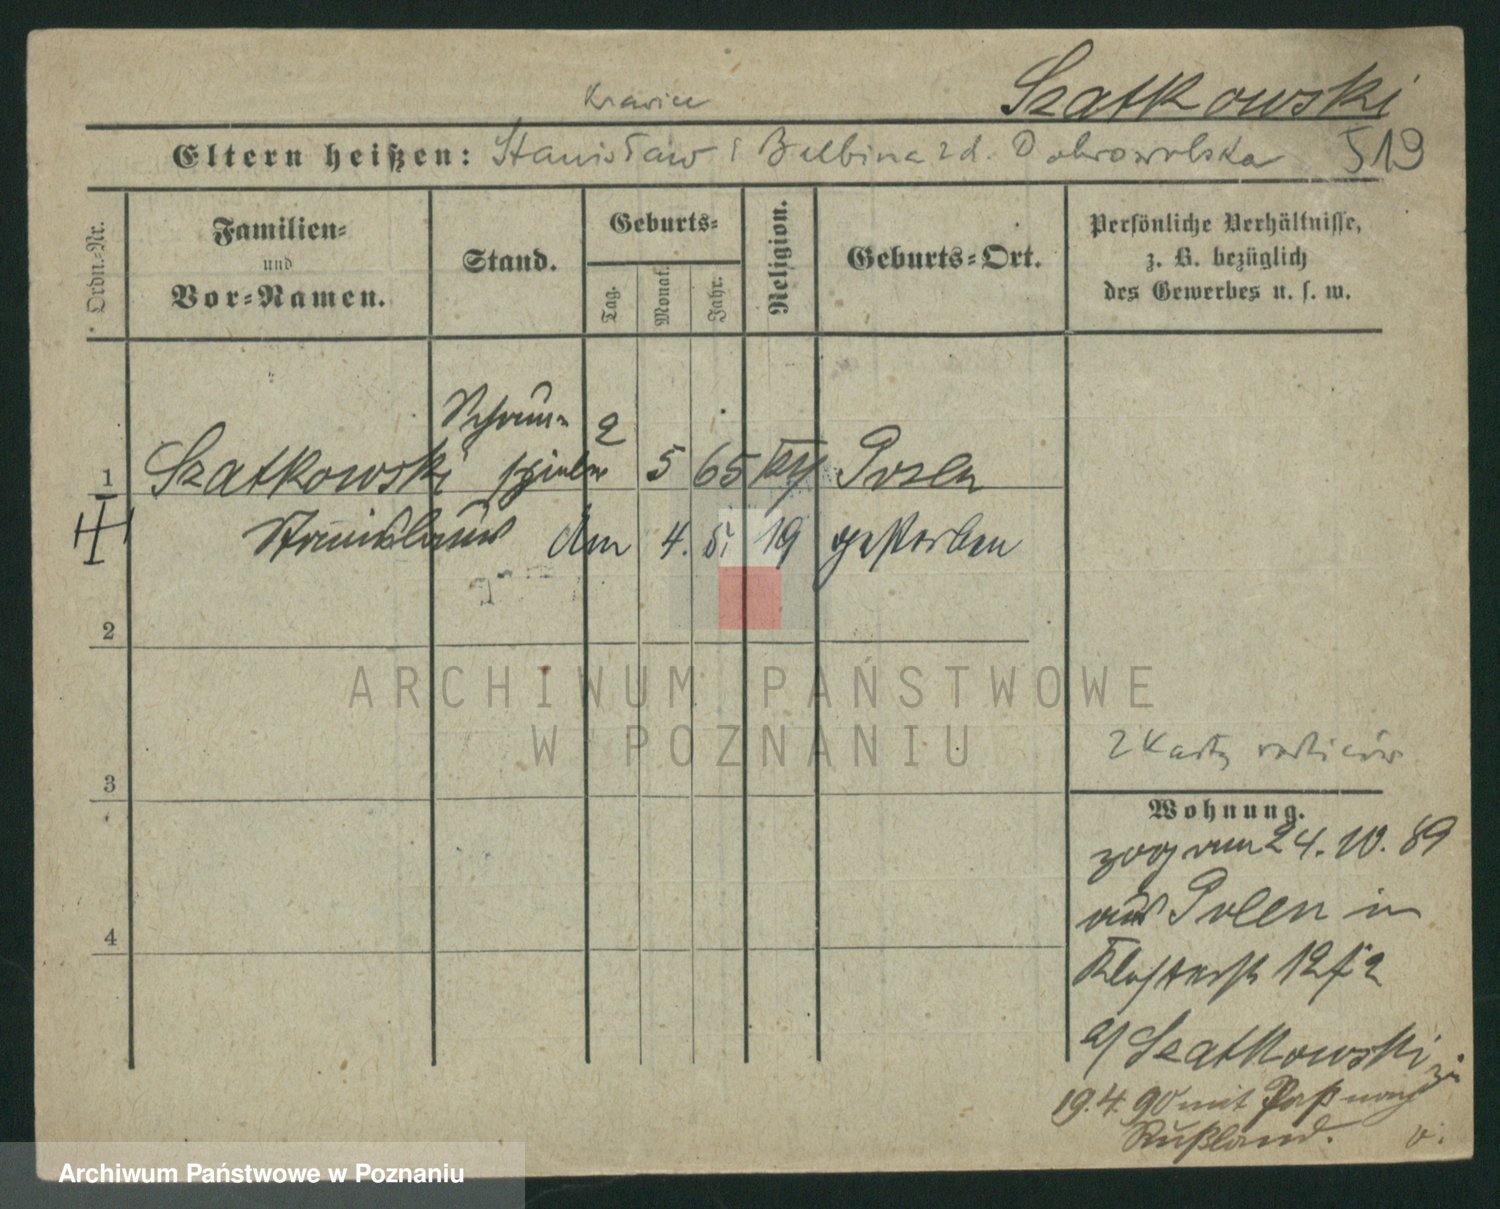 Krawiec
Szatkowski
Eltern heißen: Stanisław i Balbina z d. Dobrowolska 519
Ordn.-Nr.
Familien-
und
Vor-Namen.
Stand.
Geburts-
Tag.
Monat.
Jahr.
Religion.
Geburts-Ort.
Persönliche Verhältnisse,
z. B. bezüglich
des Gewerbes u. s. w.
Schau-
1 Szatkowski spieler 2 5 65 kth Posen
Stanislaus Am 4. 5. 19 gestorben
2
3
4
ARCHIWUM PAŃSTWOWE
W POZNANIU
2 Karty rodziców
Wohnung.
zog am 24. 10. 89
aus Polen in
Klosterstr 12
b/ Szatkowski zu
19. 4. 90 mit Paß nach
Rußland. v.
Archiwum Państwowe w Poznaniu